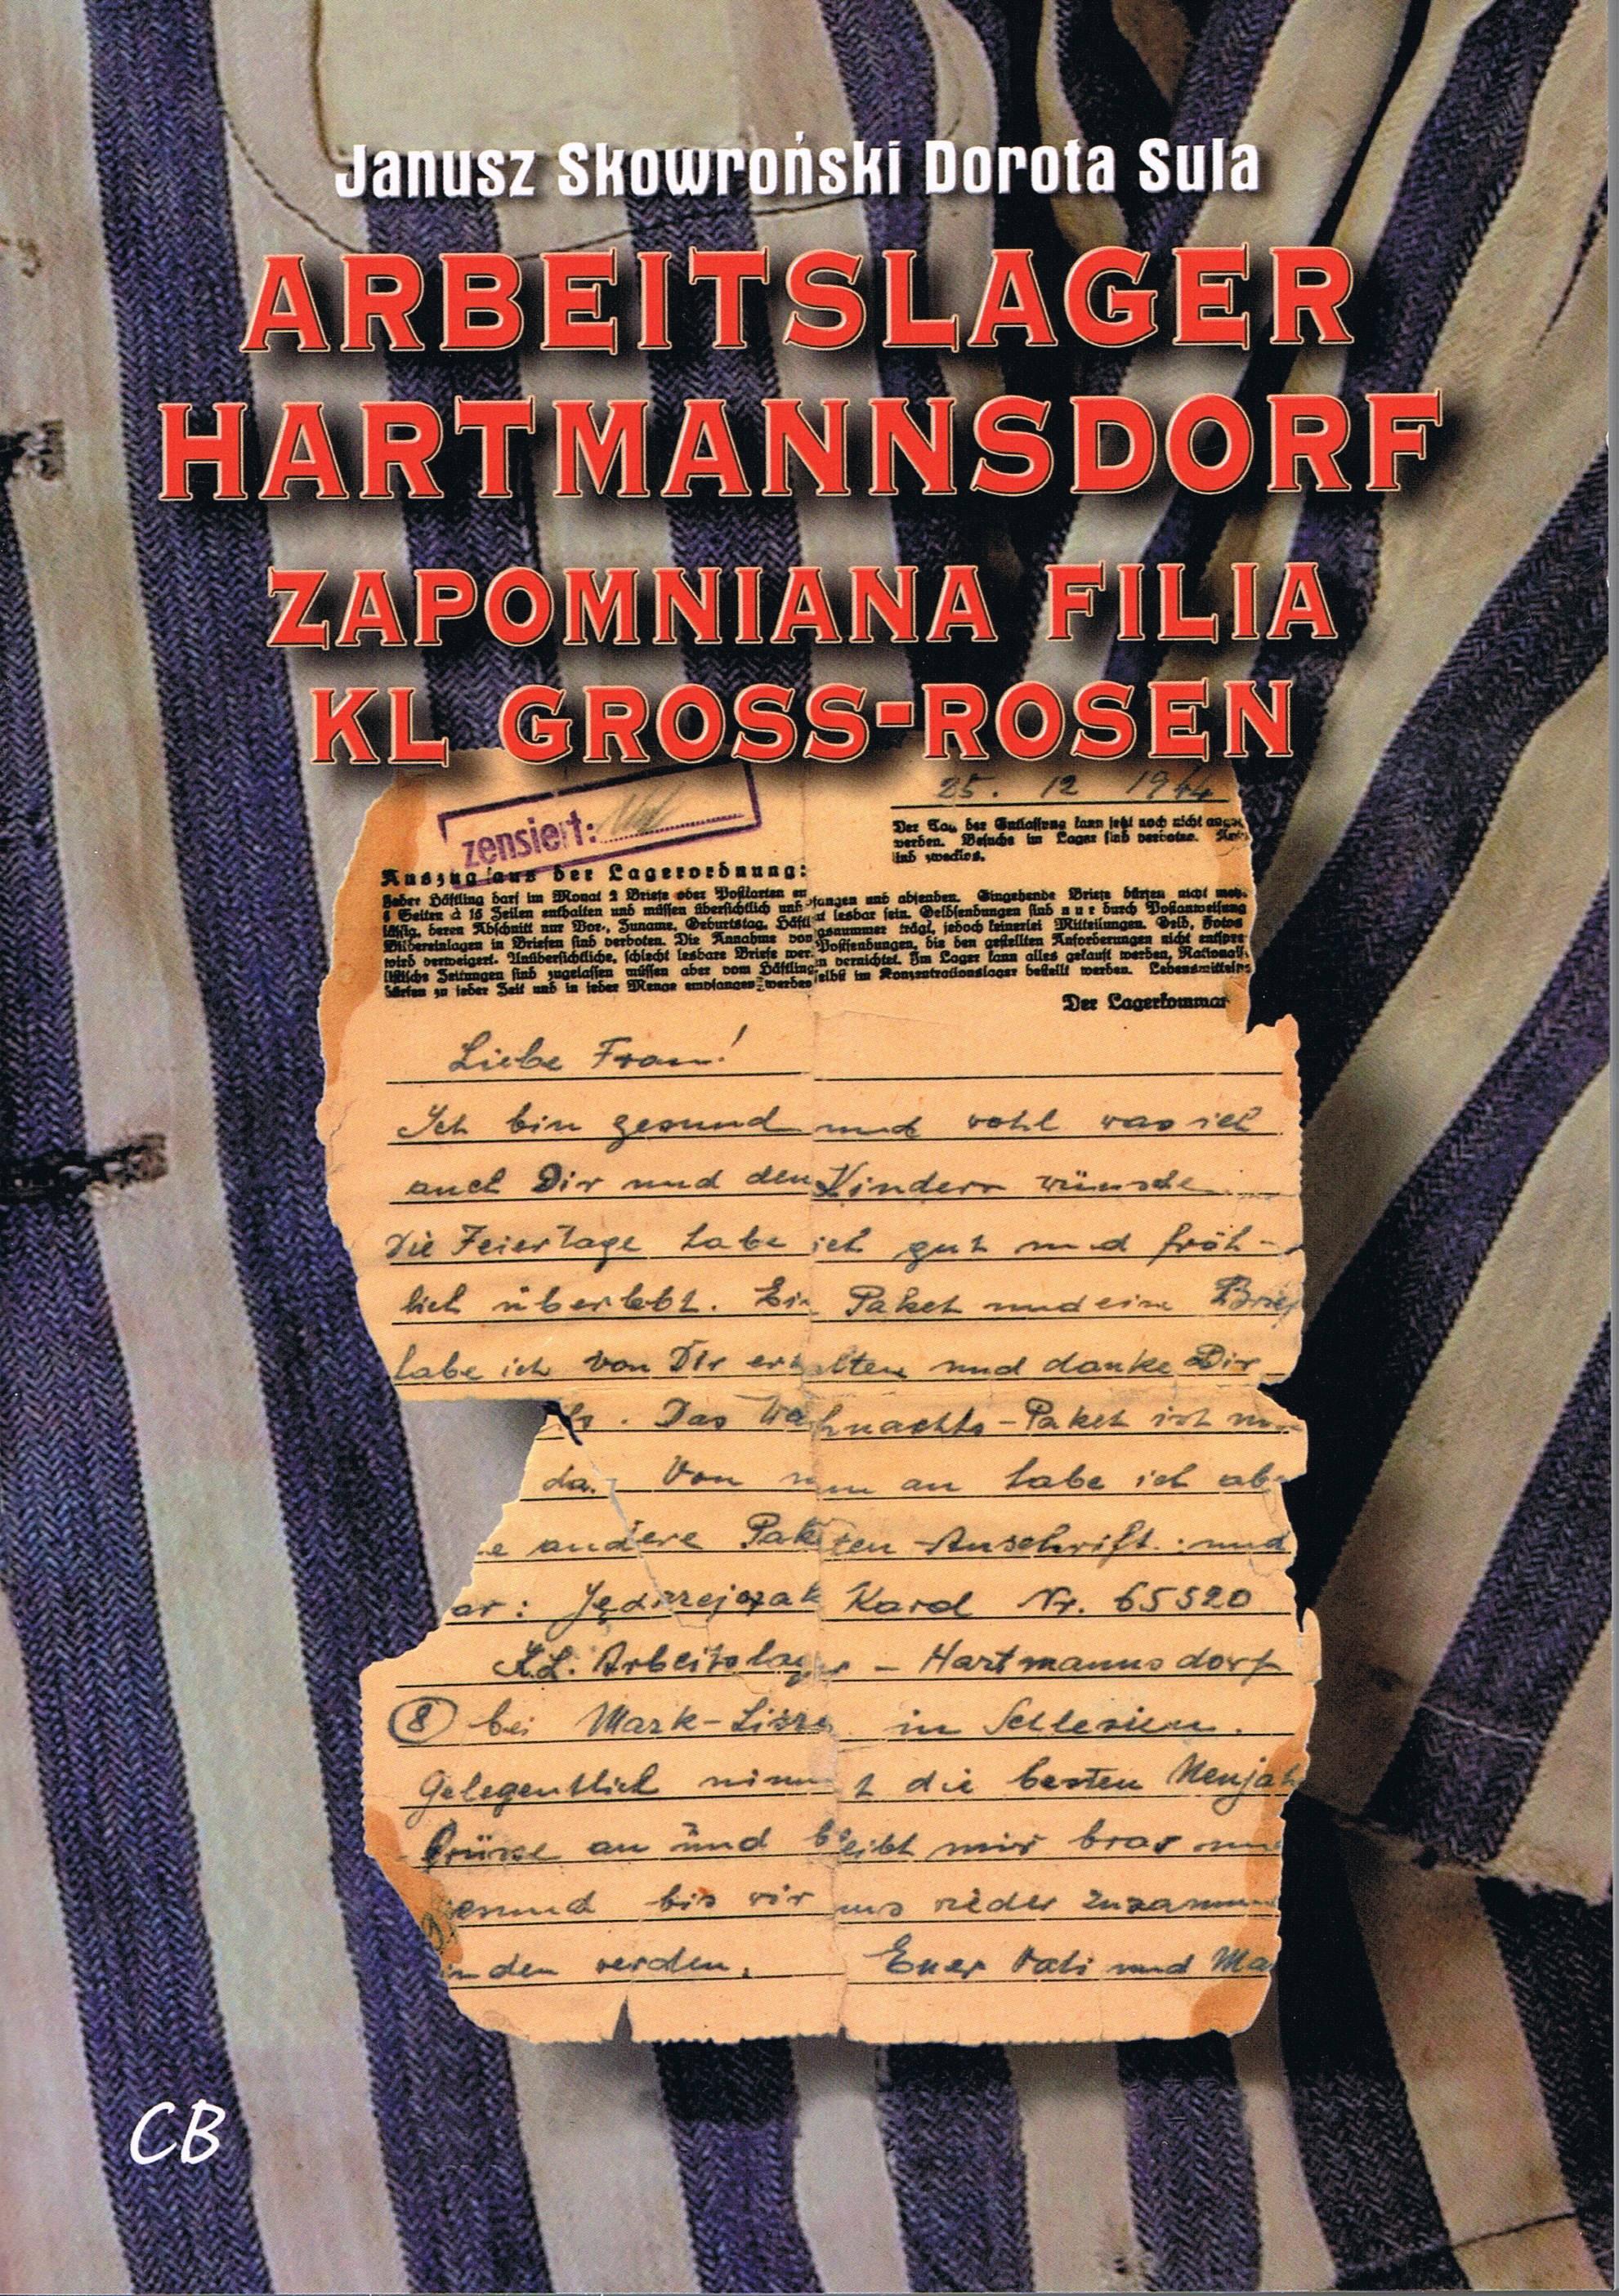 Janusz Skowroński Dorota Sula
ARBEITSLAGER
HARTMANNSDORF
ZAPOMNIANA FILIA
KL GROSS-ROSEN
zensiert:
25. 12 1944
Der Tag der Entlassung kann jetzt noch nicht
werden. Besuche im Lager sind verboten.
sind zwecklos.
Auszug aus der Lagerordnung:
Jeder Häftling darf im Monat 2 Briefe oder Postkarten en pfangen und absenden. Eingehende Briefe dürfen nicht
Seiten à 15 Zeilen enthalten und müssen übersichtlich und lesbar sein. Geldsendungen sind nur durch Postanweisung
deren Abschnitt nur Vor-, Zuname, Geburtstag, Häftl gsnummer trägt, jedoch keinerlei Mitteilungen. Geld, Fotos
Bildereinlagen in Briefen sind verboten. Die Annahme von Postsendungen, die den gestellten Anforderungen nicht
wird verweigert. Unübersichtliche, schlecht lesbare Briefe wer n vernichtet. Im Lager kann alles gekauft werden,
Zeitungen sind zugelassen müssen aber vom Häftling selbst im Konzentrationslager bestellt werden.
zu jeder Zeit und in jeder Menge empfangen werden
Der Lagerkomman
Liebe Frau!
Ich bin gesund und wohl was ich
auch Dir und den Kindern wünsche
Die Feiertage habe ich gut und fröh-
lich überlebt. Ein Paket und ein Brief
habe ich von Dir erhalten und danke Dir
Das Weihnachts-Paket ist
da. Von nun an habe ich
andere Paketen-Anschrift: und
ar: Jędrzejczak Karol Nr. 65520
K.L. Arbeitslager - Hartmannsdorf
(8) bei Mark-Lissa in Schlesien.
Gelegentlich nimmt die besten Neujah
Grüsse an und bleibt mir brav
gesund bis wir uns wieder zusamm
inden werden. Euer Vati und
CB